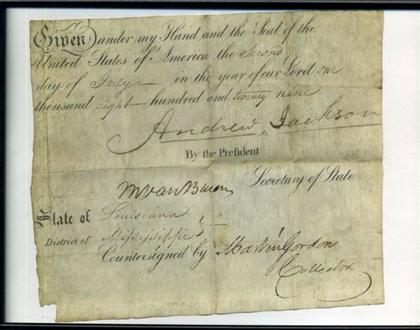 Given under my Hand and the Seal of the
United States of America the second
day of July in the year of our Lord one
thousand eight hundred and twenty nine
Andrew Jackson
By the President
M Van Buren Secretary of State
State of Louisiana
District of Mississippi
Countersigned by Martin Gordon
Collector